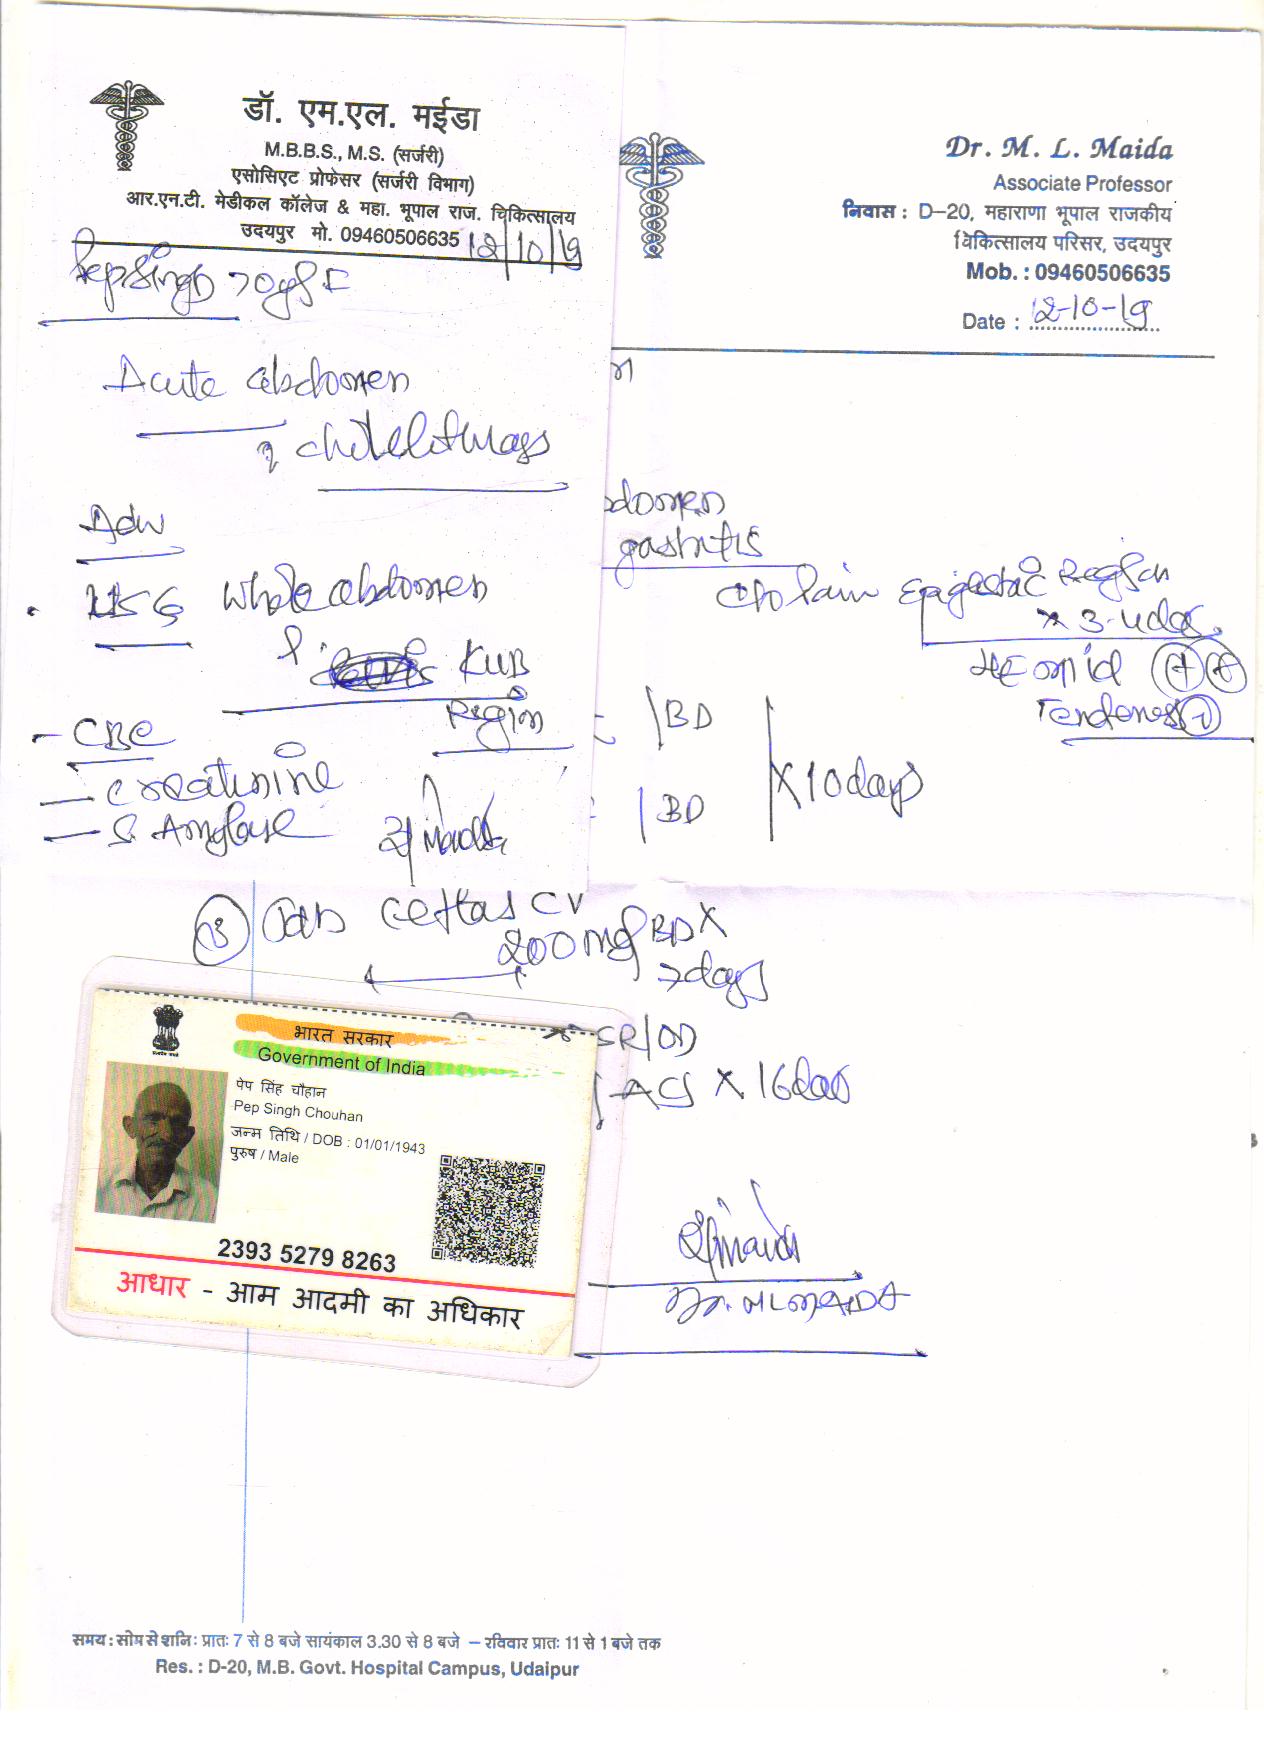 डॉ. एम.एल. मईडा
M.B.B.S., M.S. (सर्जरी)
एसोसिएट प्रोफेसर (सर्जरी विभाग)
आर.एन.टी. मेडीकल कॉलेज & महा. भूपाल राज. चिकित्सालय
उदयपुर मो. 09460506635 12/10/19
Pepsingh 70yrs
Acute abdomen
Adv
USG Whole abdomen
KUB
Region
- CBC
- Creatinine
- S. Amylase
Dr. M. L. Maida
Associate Professor
निवास : D-20, महाराणा भूपाल राजकीय
चिकित्सालय परिसर, उदयपुर
Mob. : 09460506635
Date : 12-10-19
bdomen
gastritis
C/o Pain Epigastric Region
x 3-4 days
Tenderness
1 BD
1 BD
x 10 days
③ Tab Ceftas CV
200mg BD x
7 days
SR/OD
AC x 16 days
Dr. ML MAIDA
भारत सरकार
Government of India
पेप सिंह चौहान
Pep Singh Chouhan
जन्म तिथि / DOB : 01/01/1943
पुरुष / Male
2393 5279 8263
आधार - आम आदमी का अधिकार
समय : सोम से शनि : प्रातः 7 से 8 बजे सायंकाल 3.30 से 8 बजे – रविवार प्रातः 11 से 1 बजे तक
Res. : D-20, M.B. Govt. Hospital Campus, Udaipur